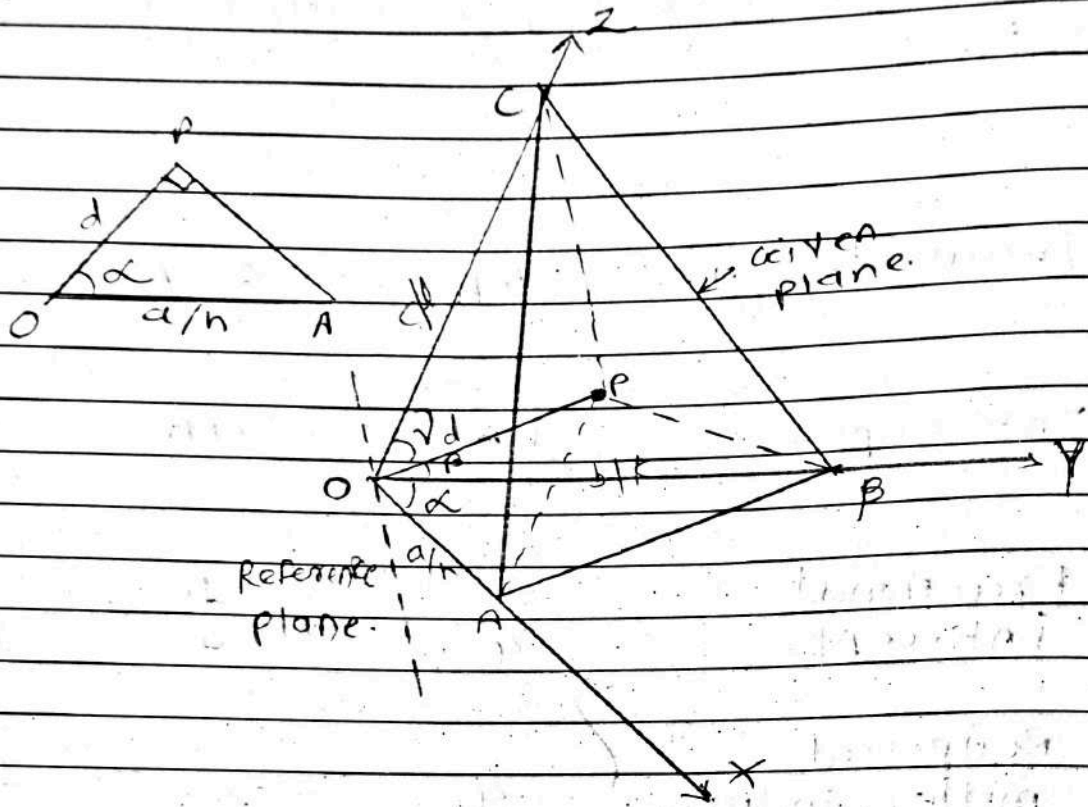 Z
C
P
d
α
O
a/h
A
c/l
given
plane.
γ
d
P
β
O
b/k
B
Y
α
a/h
Reference
plane.
A
X